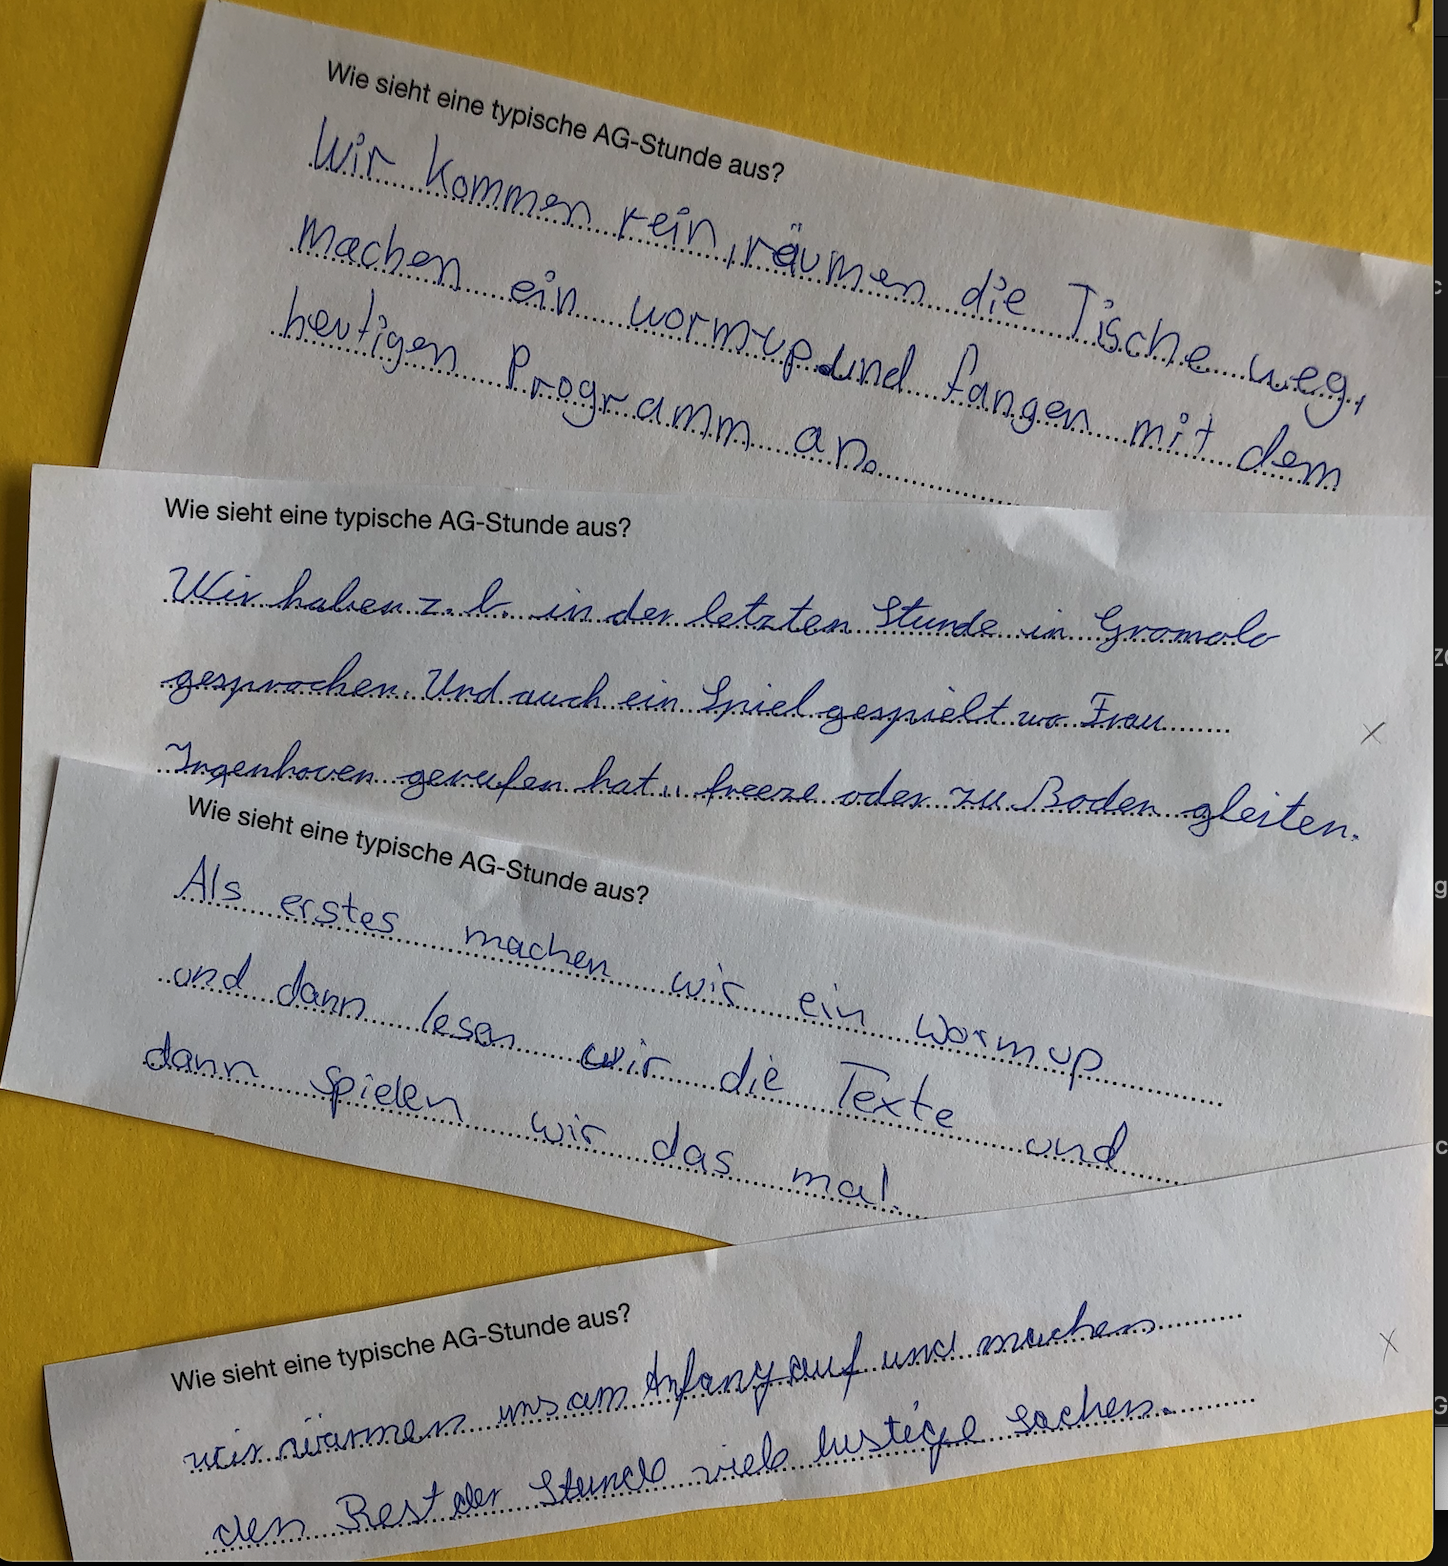 Wie sieht eine typische AG-Stunde aus?
Wir kommen rein, räumen die Tische weg,
machen ein worm-up und fangen mit dem
heutigen Programm an.
Wie sieht eine typische AG-Stunde aus?
Wir haben z. b. in der letzten Stunde in Gromolo
gesprochen. Und auch ein Spiel gespielt wo Frau
Ingenhoven gerufen hat „ freeze oder zu Boden gleiten.
Wie sieht eine typische AG-Stunde aus?
Als erstes machen wir ein Wormup
und dann lesen wir die Texte und
dann spielen wir das mal.
Wie sieht eine typische AG-Stunde aus?
wir wärmen uns am Anfang auf und machen
den Rest der Stunde viele lustige sachen.